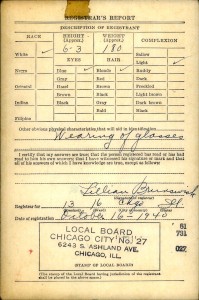 REGISTRAR'S REPORT
DESCRIPTION OF REGISTRANT
RACE HEIGHT (Approx.) WEIGHT (Approx.) COMPLEXION
6-3 180
White ✓ EYES HAIR Sallow
Light ✓
Negro Blue ✓ Blonde ✓ Ruddy
Gray Red Dark
Oriental Hazel Brown Freckled
Brown Black Light brown
Indian Black Gray Dark brown
Bald Black
Filipino
Other obvious physical characteristics that will aid in identification
Wearing of glasses
I certify that my answers are true; that the person registered has read or has had
read to him his own answers; that I have witnessed his signature or mark and that
all of his answers of which I have knowledge are true, except as follows:
Lillian
Registrar for 13 16 Chgo Ill.
Date of registration October 16-1940
LOCAL BOARD
CHICAGO CITY NO. 127
6243 S. ASHLAND AVE.
CHICAGO, ILL.
61
731
027
STAMP OF LOCAL BOARD
(The stamp of the Local Board having jurisdiction of the registrant
shall be placed in the above space.)